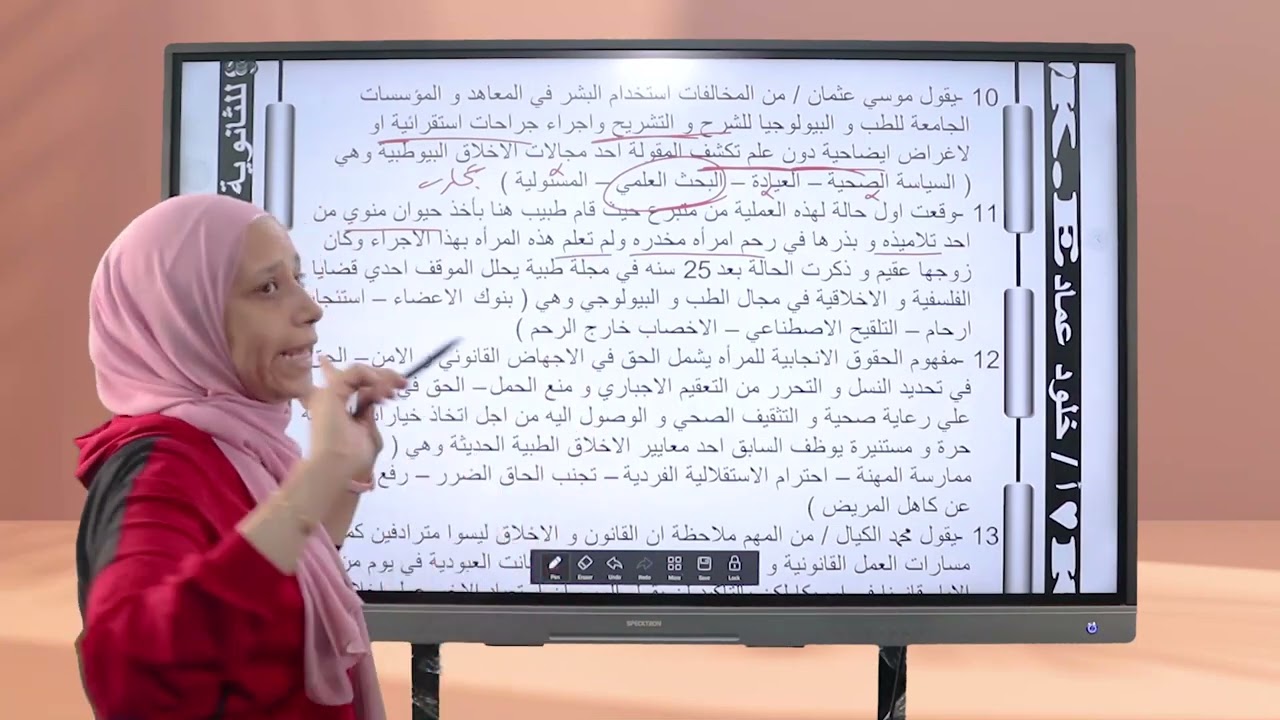 10 -يقول موسي عثمان / من المخالفات استخدام البشر في المعاهد و المؤسسات
الجامعة للطب و البيولوجيا للشرح و التشريح واجراء جراحات استقرائية او
لاغراض ايضاحية دون علم تكشف المقولة احد مجالات الاخلاق البيوطبية وهي
( السياسة الصحية – العيادة – البحث العلمي – المسئولية )
11 -وقعت اول حالة لهذه العملية من متبرع حيث قام طبيب هنا بأخذ حيوان منوي من
احد تلاميذه و بذرها في رحم امرأه مخدره ولم تعلم هذه المرأه بهذا الاجراء وكان
زوجها عقيم و ذكرت الحالة بعد 25 سنه في مجلة طبية يحلل الموقف احدي قضايا
الفلسفية و الاخلاقية في مجال الطب و البيولوجي وهي ( بنوك الاعضاء –
ارحام – التلقيح الاصطناعي – الاخصاب خارج الرحم )
12 -مفهوم الحقوق الانجابية للمرأه يشمل الحق في الاجهاض القانوني الامن –
في تحديد النسل و التحرر من التعقيم الاجباري و منع الحمل– الحق في
علي رعاية صحية و التثقيف الصحي و الوصول اليه من اجل اتخاذ
حرة و مستنيرة يوظف السابق احد معايير الاخلاق الطبية الحديثة وهي (
ممارسة المهنة – احترام الاستقلالية الفردية – تجنب الحاق الضرر – رفع
عن كاهل المريض )
13 -يقول محمد الكيال / من المهم ملاحظة ان القانون و الاخلاق ليسوا مترادفين
مسارات العمل القانونية و العبودية في يوم
للثانوية
أ / خلود عماد
Pen Eraser Undo Redo More Save Lock
SPECKTRON